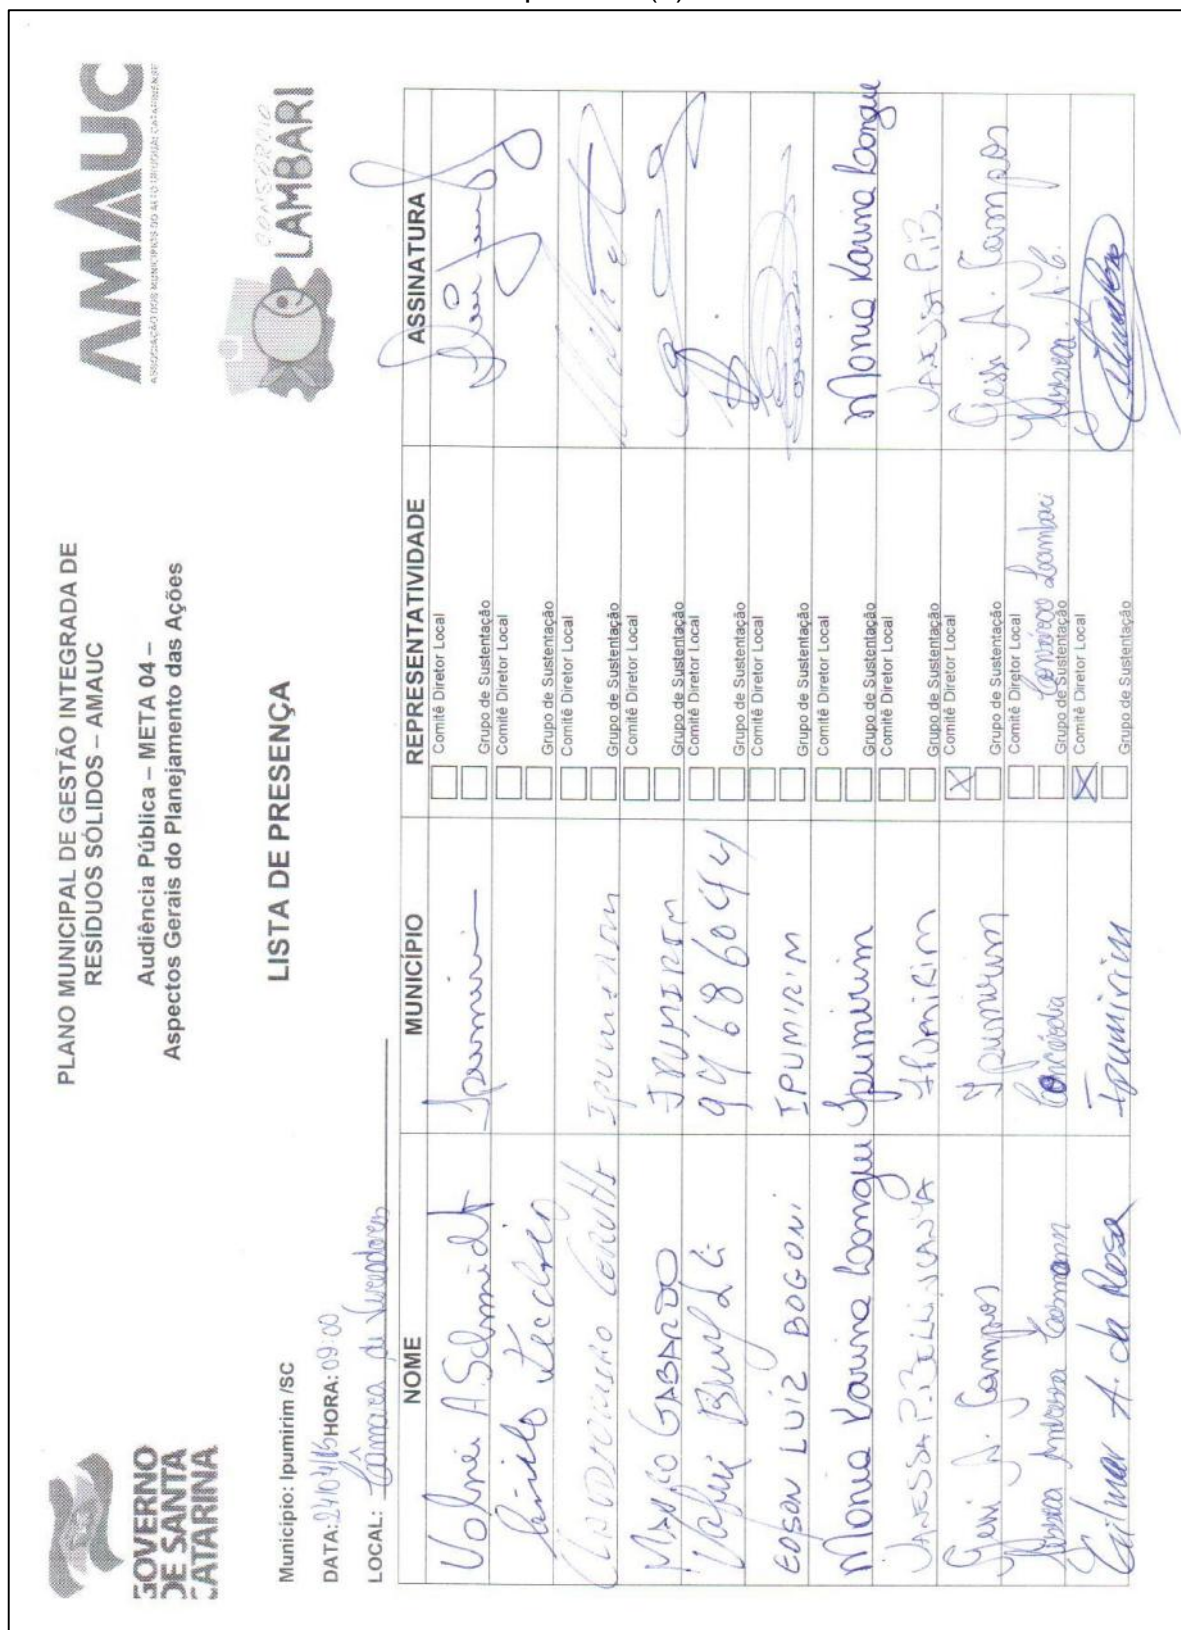 GOVERNO
DE SANTA
CATARINA
PLANO MUNICIPAL DE GESTÃO INTEGRADA DE
RESÍDUOS SÓLIDOS – AMAUC
Audiência Pública – META 04 –
Aspectos Gerais do Planejamento das Ações
AMAUC
ASSOCIAÇÃO DOS MUNICÍPIOS DO ALTO URUGUAI CATARINENSE
CONSÓRCIO
LAMBARI
LISTA DE PRESENÇA
Município: Ipumirim /SC
DATA: HORA: 09:00
LOCAL: Câmara de Vereadores
NOME MUNICÍPIO REPRESENTATIVIDADE ASSINATURA
Volnei A. Schmidt Ipumirim Comitê Diretor Local
Grupo de Sustentação
Comitê Diretor Local
Grupo de Sustentação
Ipumirim Comitê Diretor Local
Grupo de Sustentação
Marco GABARDO IPUMIRIM Comitê Diretor Local
Grupo de Sustentação
99686044 Comitê Diretor Local
Grupo de Sustentação
EDSON LUIZ BOGONI IPUMIRIM Comitê Diretor Local
Grupo de Sustentação
Monia Karina Longue Ipumirim Comitê Diretor Local Monia Karina Longue
Grupo de Sustentação
VANESSA P. Ipumirim Comitê Diretor Local VANESSA P.B.
Grupo de Sustentação
Gessi A. Campos Ipumirim X Comitê Diretor Local Gessi A. Campos
Grupo de Sustentação
Andressa Concórdia Comitê Diretor Local
Grupo de Sustentação Consórcio Lambari
Gilmar A. da Rosa Ipumirim X Comitê Diretor Local
Grupo de Sustentação